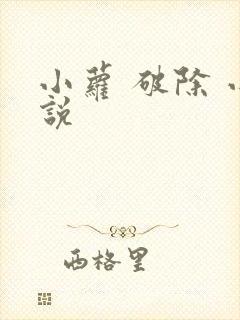 小蘿 破除
說
西格里